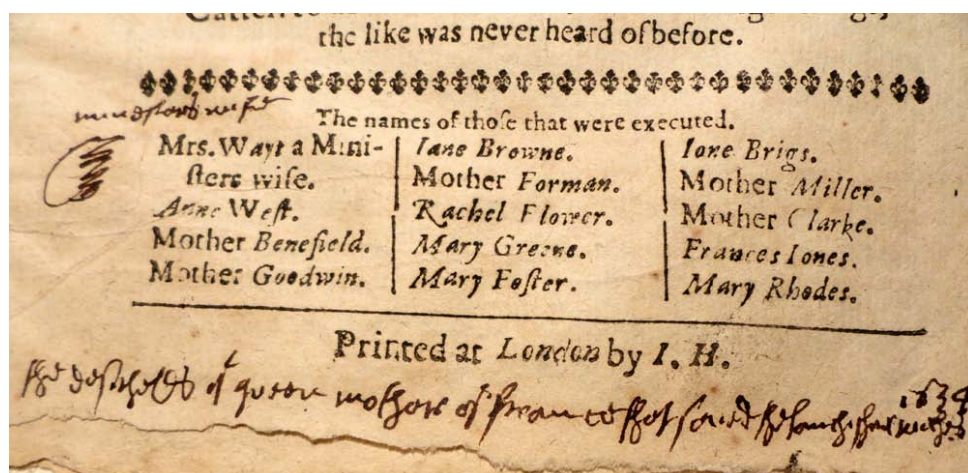 the like was never heard of before.
ministers wife
The names of thoſe that were executed.
Mrs. Wayt a Mini-
ſters wife.
Anne Weſt.
Mother Benefield.
Mother Goodwin.
Iane Browne.
Mother Forman.
Rachel Flower.
Mary Greene.
Mary Foſter.
Ione Brigs.
Mother Miller.
Mother Clarke.
Frances Iones.
Mary Rhodes.
Printed at London by I. H.
queen mother of france